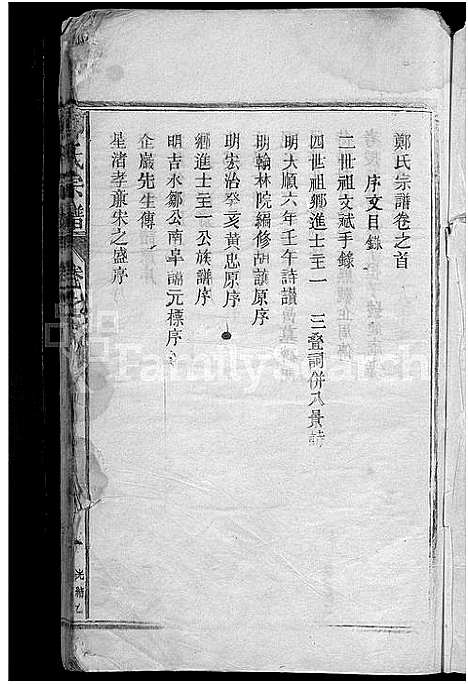 鄭氏宗譜卷之首
序文目錄
二世祖文斌手錄
四世祖鄉進士至一 三叠詞併八景詩
明大順六年壬午詩讃
明翰林院編修胡 原序
明宏治癸亥黃忠原序
鄉進士至一公族譜序
明吉水鄒公南皐 元標序
企嚴先生傳
星渚孝亷宋之盛序
氏宗譜
卷之
光緒乙
FamilySearch